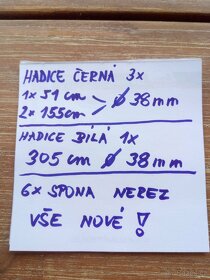 HADICE ČERNÁ 3x
1x 51 cm
2x 155cm > ⌀ 38mm
HADICE BÍLÁ 1x
305 cm ⌀ 38mm
6x SPONA NEREZ
VŠE NOVÉ !